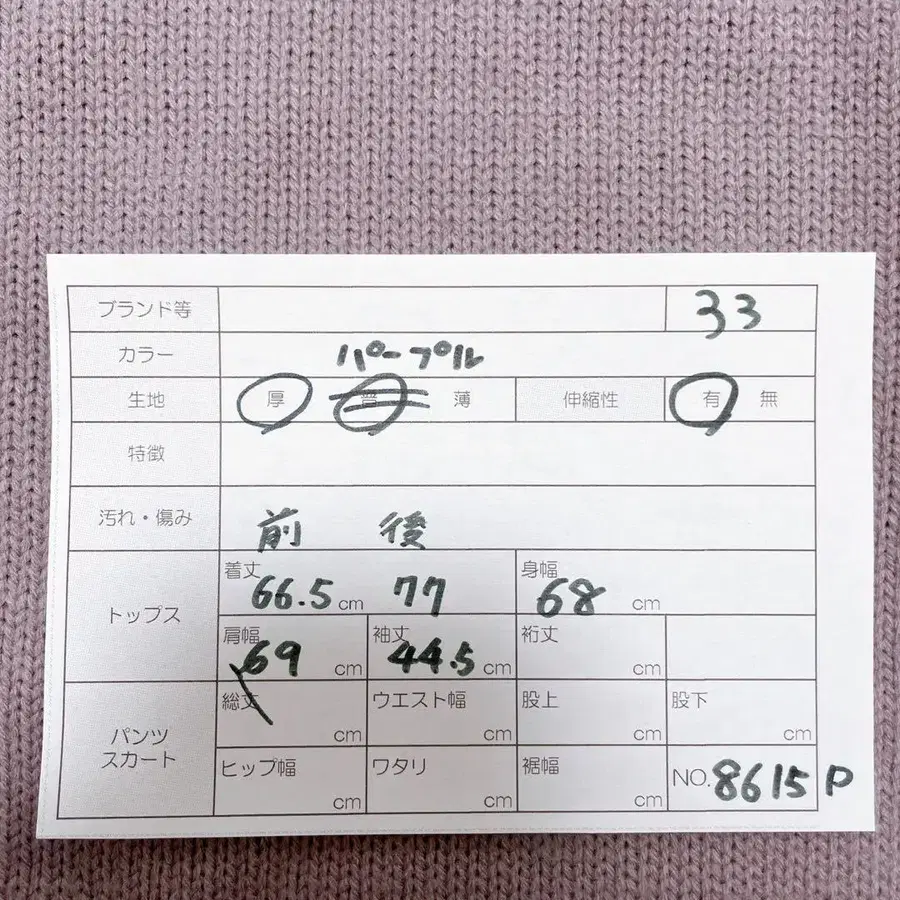 ブランド等 33
カラー パープル
生地 厚 普 薄 伸縮性 有 無
特徴
汚れ・傷み
前 後
トップス 着丈 66.5 cm 77 身幅 68 cm
肩幅 69 cm 袖丈 44.5 cm 裄丈 cm
パンツ スカート 総丈 cm ウエスト幅 cm 股上 cm 股下 cm
ヒップ幅 cm ワタリ cm 裾幅 cm NO. 8615 P